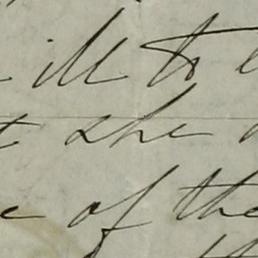 ill to
she
of the